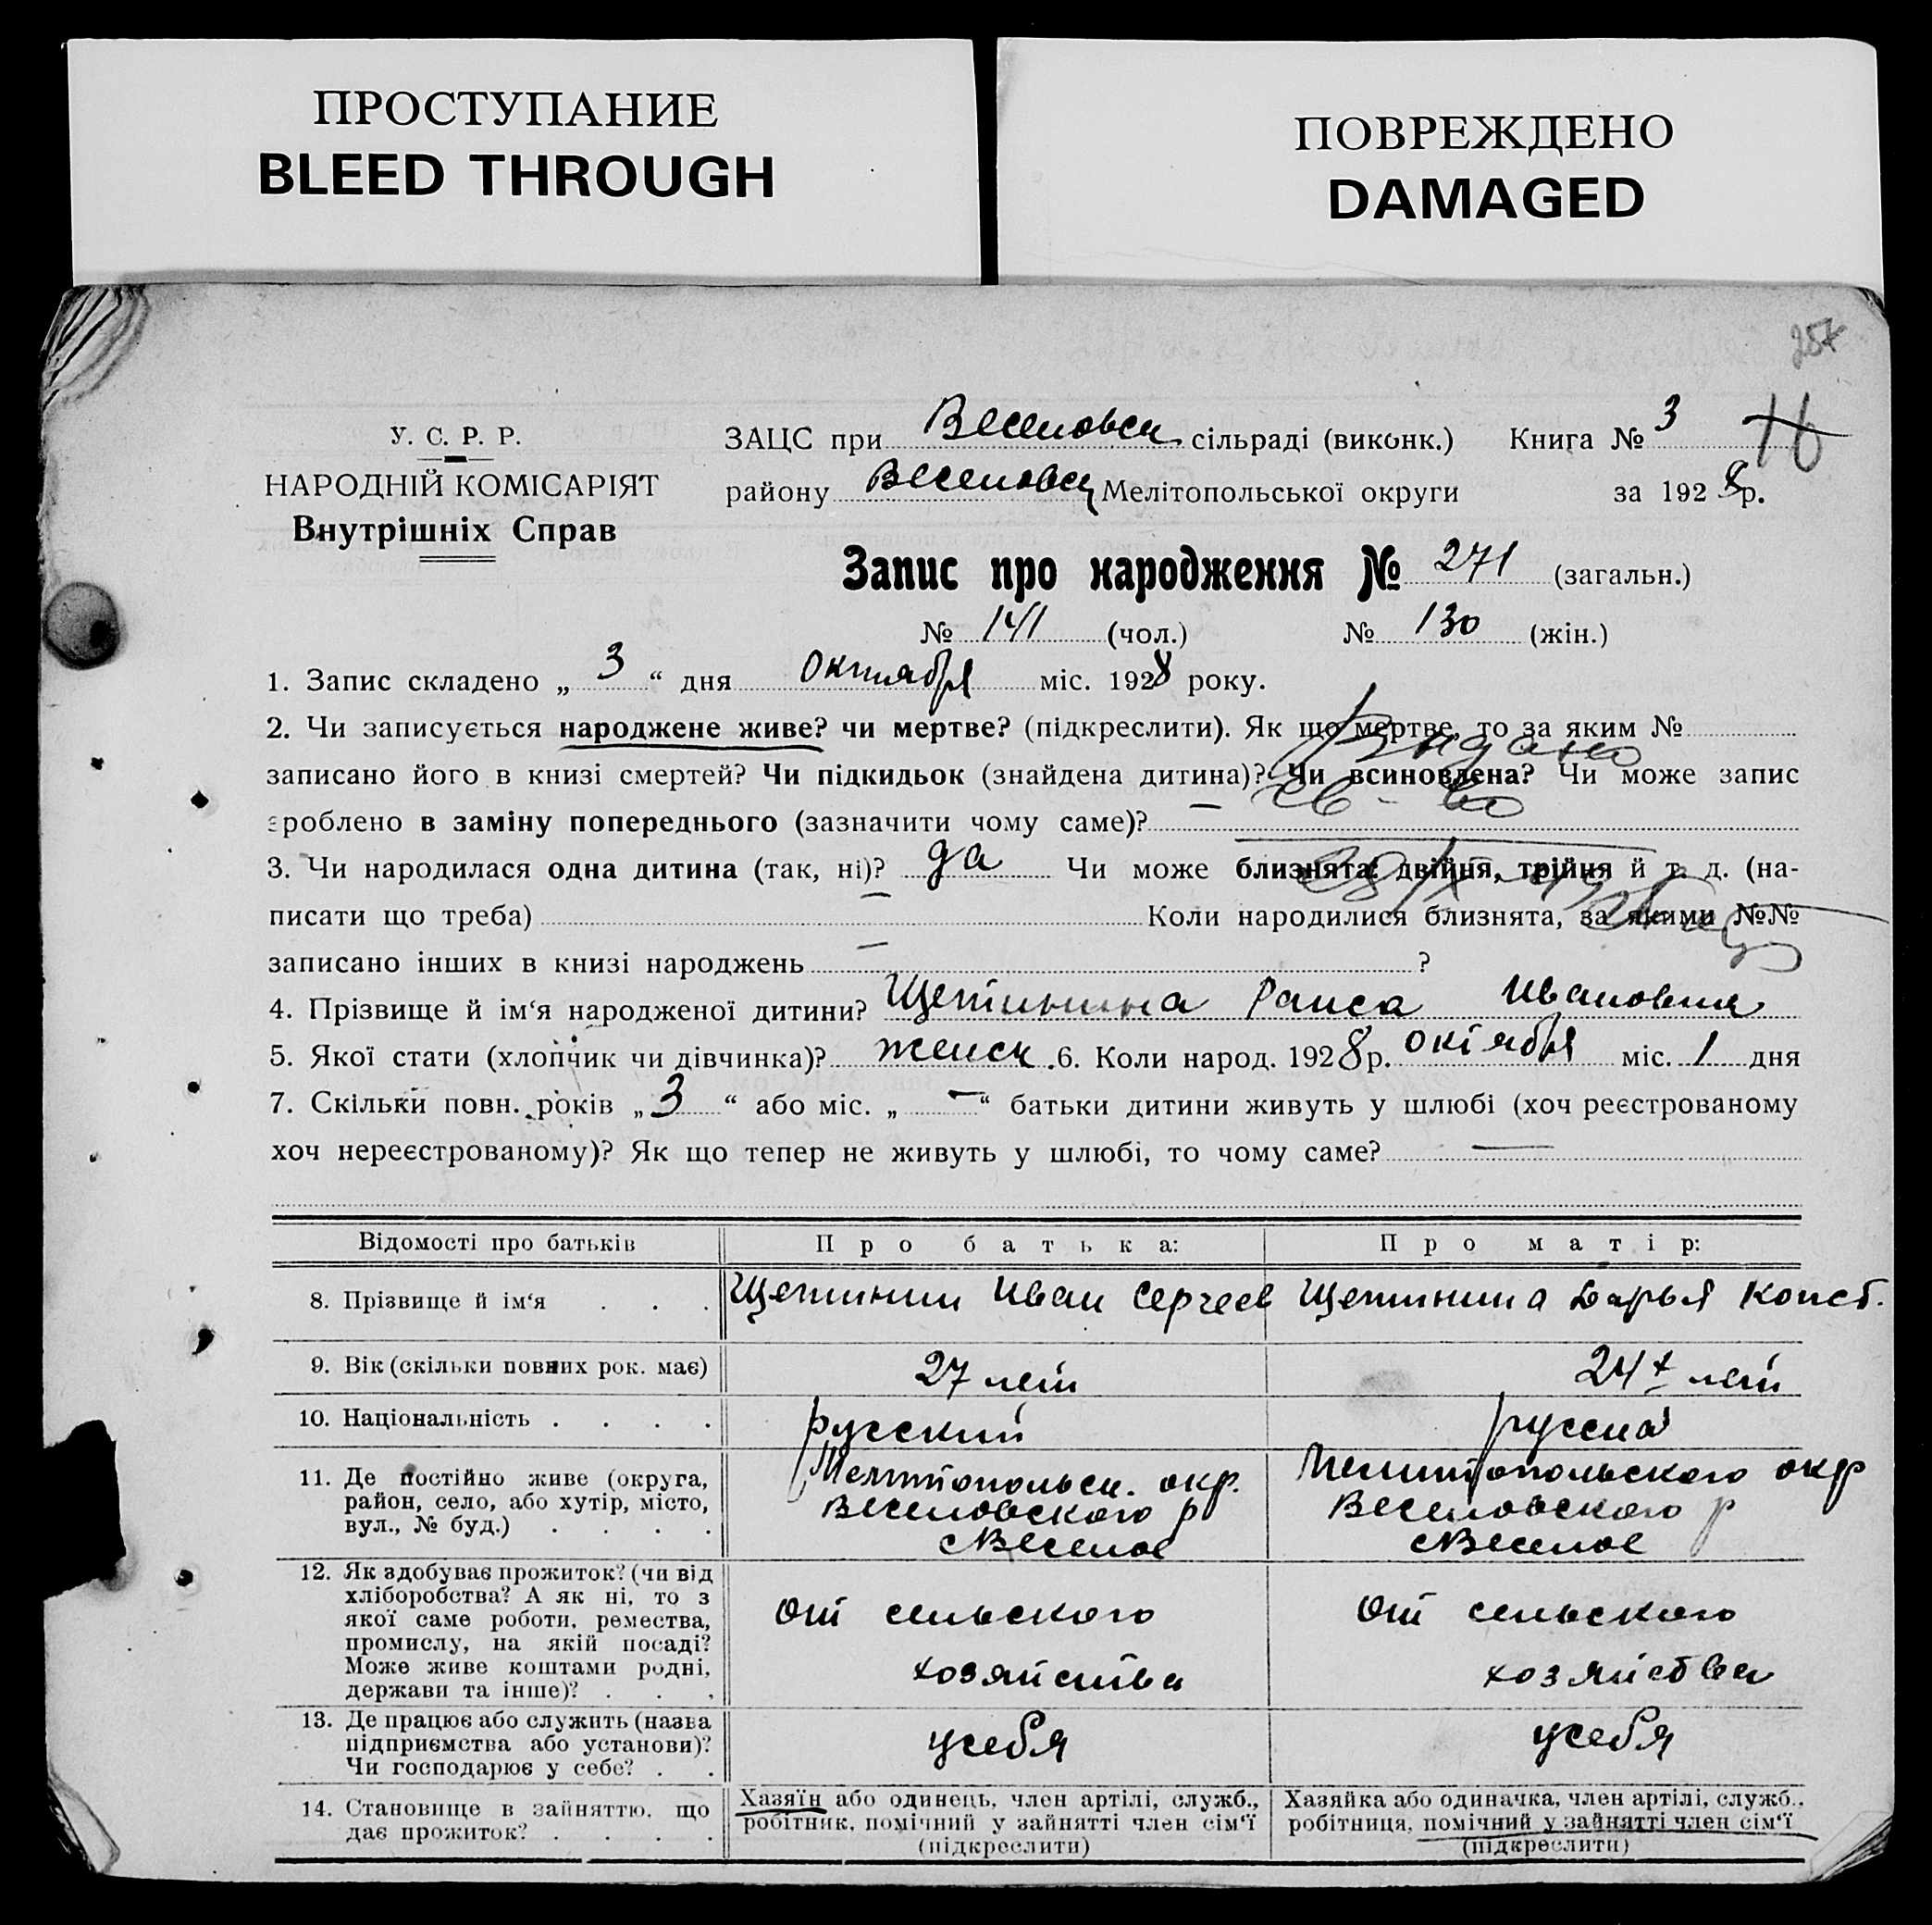 ПРОСТУПАНИЕ
BLEED THROUGH
ПОВРЕЖДЕНО
DAMAGED
257
У. С. Р. Р.
НАРОДНІЙ КОМІСАРІЯТ
Внутрішніх Справ
ЗАЦС при Веселовск сільраді (виконк.) Книга № 3
району Веселовск Мелітопольської округи за 1928 р.
Запис про народження № 271 (загальн.)
№ 141 (чол.) № 130 (жін.)
1. Запис складено „ 3 “ дня Октября міс. 1928 року.
2. Чи записується народжене живе? чи мертве? (підкреслити). Як що мертве, то за яким №
Видано
записано його в книзі смертей? Чи підкидьок (знайдена дитина)? Чи всиновлена? Чи може запис
св-во
зроблено в заміну попереднього (зазначити чому саме)? —
3. Чи народилася одна дитина (так, ні)? да Чи може близнята: двійня, трійня й т. д. (на-
писати що треба) — Коли народилися близнята, за якими №№
записано інших в книзі народжень — ?
4. Прізвище й ім‘я народженої дитини? Щетинина Раиса Ивановна
5. Якої стати (хлопчик чи дівчинка)? женск. 6. Коли народ. 1928 р. октября міс. 1 дня
7. Скільки повн. років „ 3 “ або міс. „ — “ батьки дитини живуть у шлюбі (хоч реєстрованому
хоч нереєстрованому)? Як що тепер не живуть у шлюбі, то чому саме? —
Відомості про батьків Про батька: Про матір:
8. Прізвище й ім‘я . . . Щетинин Иван Сергеев Щетинина Дарья Конст.
9. Вік (скільки повних рок. має) 27 лет 24 лет
10. Національність . . . . русский русская
11. Де постійно живе (округа,
район, село, або хутір, місто,
вул., № буд.) . . . .
Мелитопольск. окр.
Веселовского р
с Веселое
Мелитопольского окр
Веселовского р
с Веселое
12. Як здобуває прожиток? (чи від
хліборобства? А як ні, то з
якої саме роботи, ремества,
промислу, на якій посаді?
Може живе коштами родні,
держави та інше)? . . .
От сельского
хозяйства
От сельского
хозяйства
13. Де працює або служить (назва
підприємства або установи)?
Чи господарює у себе? . .
у себя
у себя
14. Становище в зайняттю, що
дає прожиток? . . . .
Хазяїн або одинець, член артілі, служб.,
робітник, помічний у зайнятті член сім‘ї
(підкреслити)
Хазяйка або одиначка, член артілі, служб.,
робітниця, помічний у зайнятті член сім‘ї
(підкреслити)